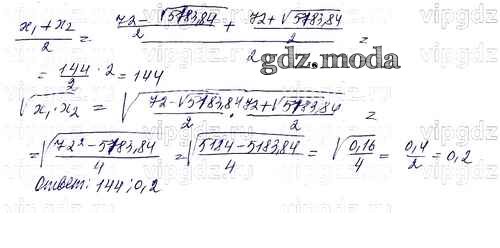 (x₁ + x₂)/2 = ((72 - √5183,84)/2 + (72 + √5183,84)/2)/2 =
= 144/2 · 2 = 144
√(x₁ · x₂) = √((72 - √5183,84)/2 · (72 + √5183,84)/2) =
= √((72² - 5183,84)/4) = √((5184 - 5183,84)/4) = √(0,16/4) = 0,4/2 = 0,2
Ответ: 144; 0,2
gdz.moda
vipgdz